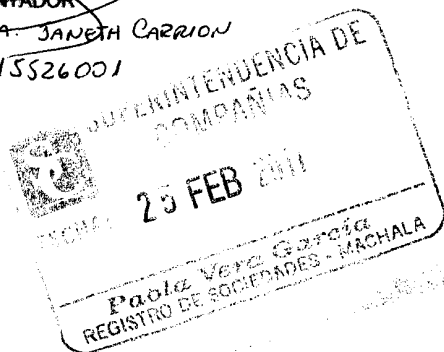 CONTADOR
A. JANETH CARRION
15526001
SUPERINTENDENCIA DE
COMPAÑIAS
FECHA: 25 FEB 2011
Paola Vera García
REGISTRO DE SOCIEDADES - MACHALA